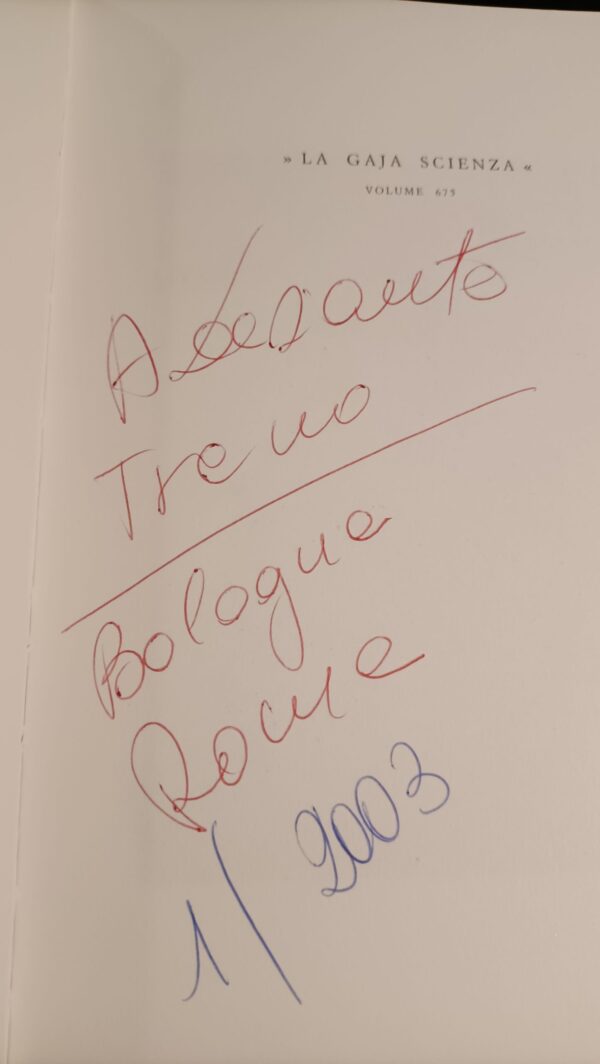 » LA GAJA SCIENZA «
VOLUME 675
Treno
Bologna
Roma
1/2003